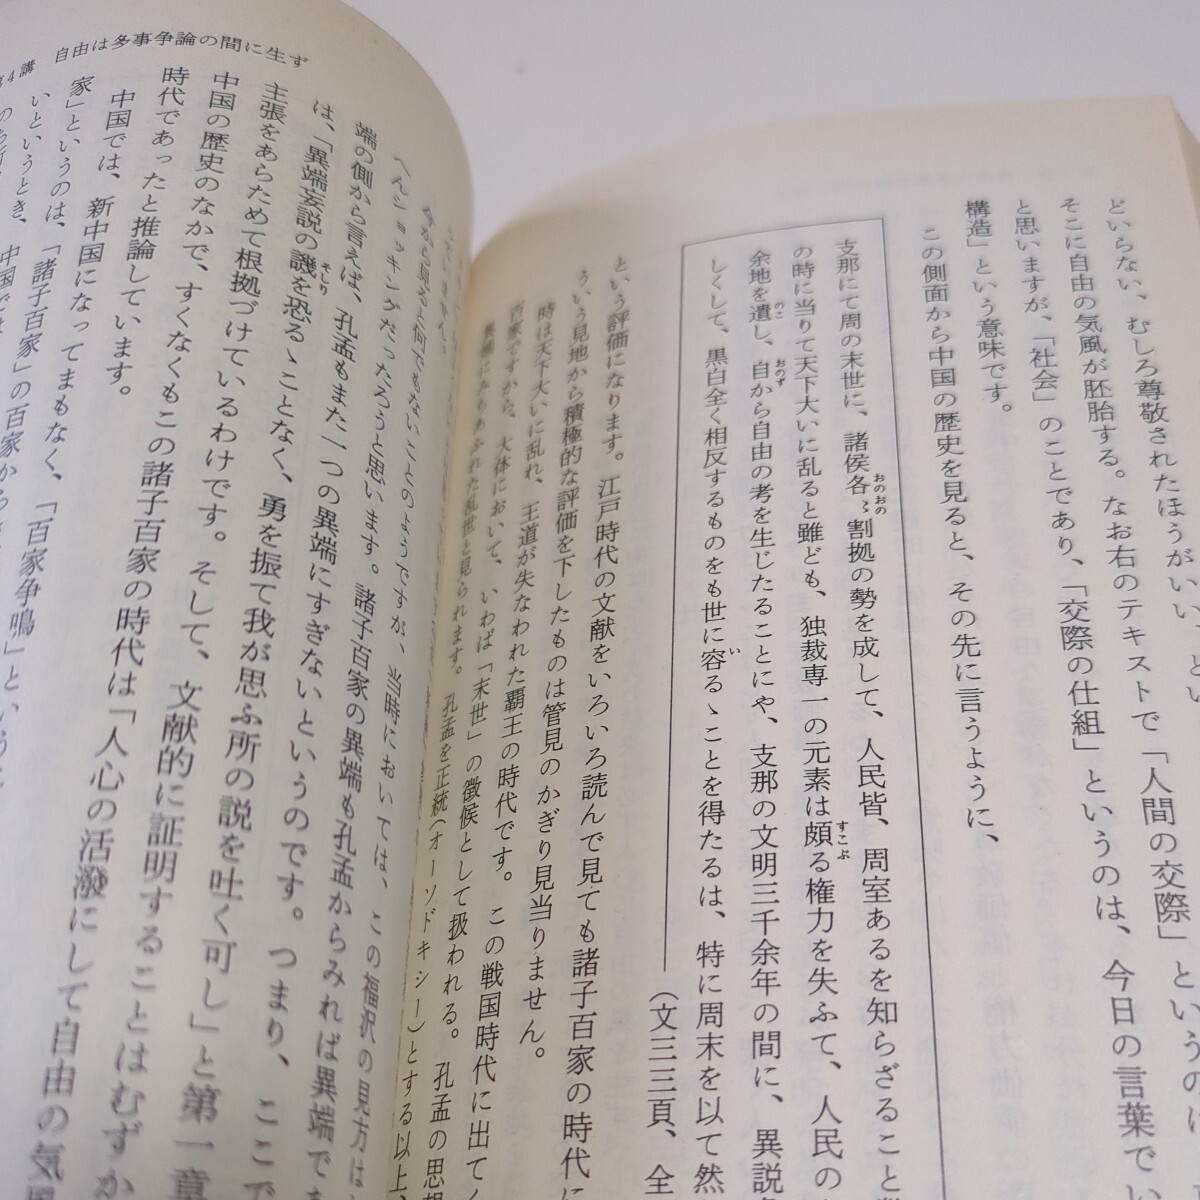 どいらない、むしろ尊敬されたほうがいい、と
そこに自由の気風が胚胎する。なお右のテキストで「人間の交際」というのは
と思いますが、「社会」のことであり、「交際の仕組」というのは、今日の言葉でい
構造」という意味です。
この側面から中国の歴史を見ると、その先に言うように、
支那にて周の末世に、諸侯各〻割拠の勢を成して、人民皆、周室あるを知らざること
おのおの
の時に当りて天下大いに乱ると雖ども、独裁専一の元素は頗る権力を失ふて、人民の
すこぶ
余地を遺し、自から自由の考を生じたることにや、支那の文明三千余年の間に、異説
のこ
おのず
しくして、黒白全く相反するものをも世に容るゝことを得たるは、特に周末を以て然
い
(文三三頁、全
という評価になります。江戸時代の文献をいろいろ読んで見ても諸子百家の時代に
ういう見地から積極的な評価を下したものは管見のかぎり見当りません。
時は天下大いに乱れ、王道が失なわれた覇王の時代です。この戦国時代に出てく
百家ですから、大体において、いわば「末世」の徴候として扱われる。孔孟の思想
異端にみちあふれた乱世と見られます。孔孟を正統(オーソドキシー)とする以上、
第4講 自由は多事争論の間に生ず
ていません。
今から見ると何でもないことのようですが、当時においては、この福沢の見方は
へんショッキングだったろうと思います。諸子百家の異端も孔孟からみれば異端で
端の側から言えば、孔孟もまた一つの異端にすぎないというのです。つまり、ここで
は、「異端妄説の譏を恐るゝことなく、勇を振て我が思ふ所の説を吐く可し」と第一章
そしり
主張をあらためて根拠づけているわけです。そして、文献的に証明することはむずか
中国の歴史のなかで、すくなくもこの諸子百家の時代は「人心の活潑にして自由の気風
時代であったと推論しています。
中国では、新中国になってまもなく、「百家争鳴」という
家」というのは、「諸子百家」の百家から
いというとき、中国では